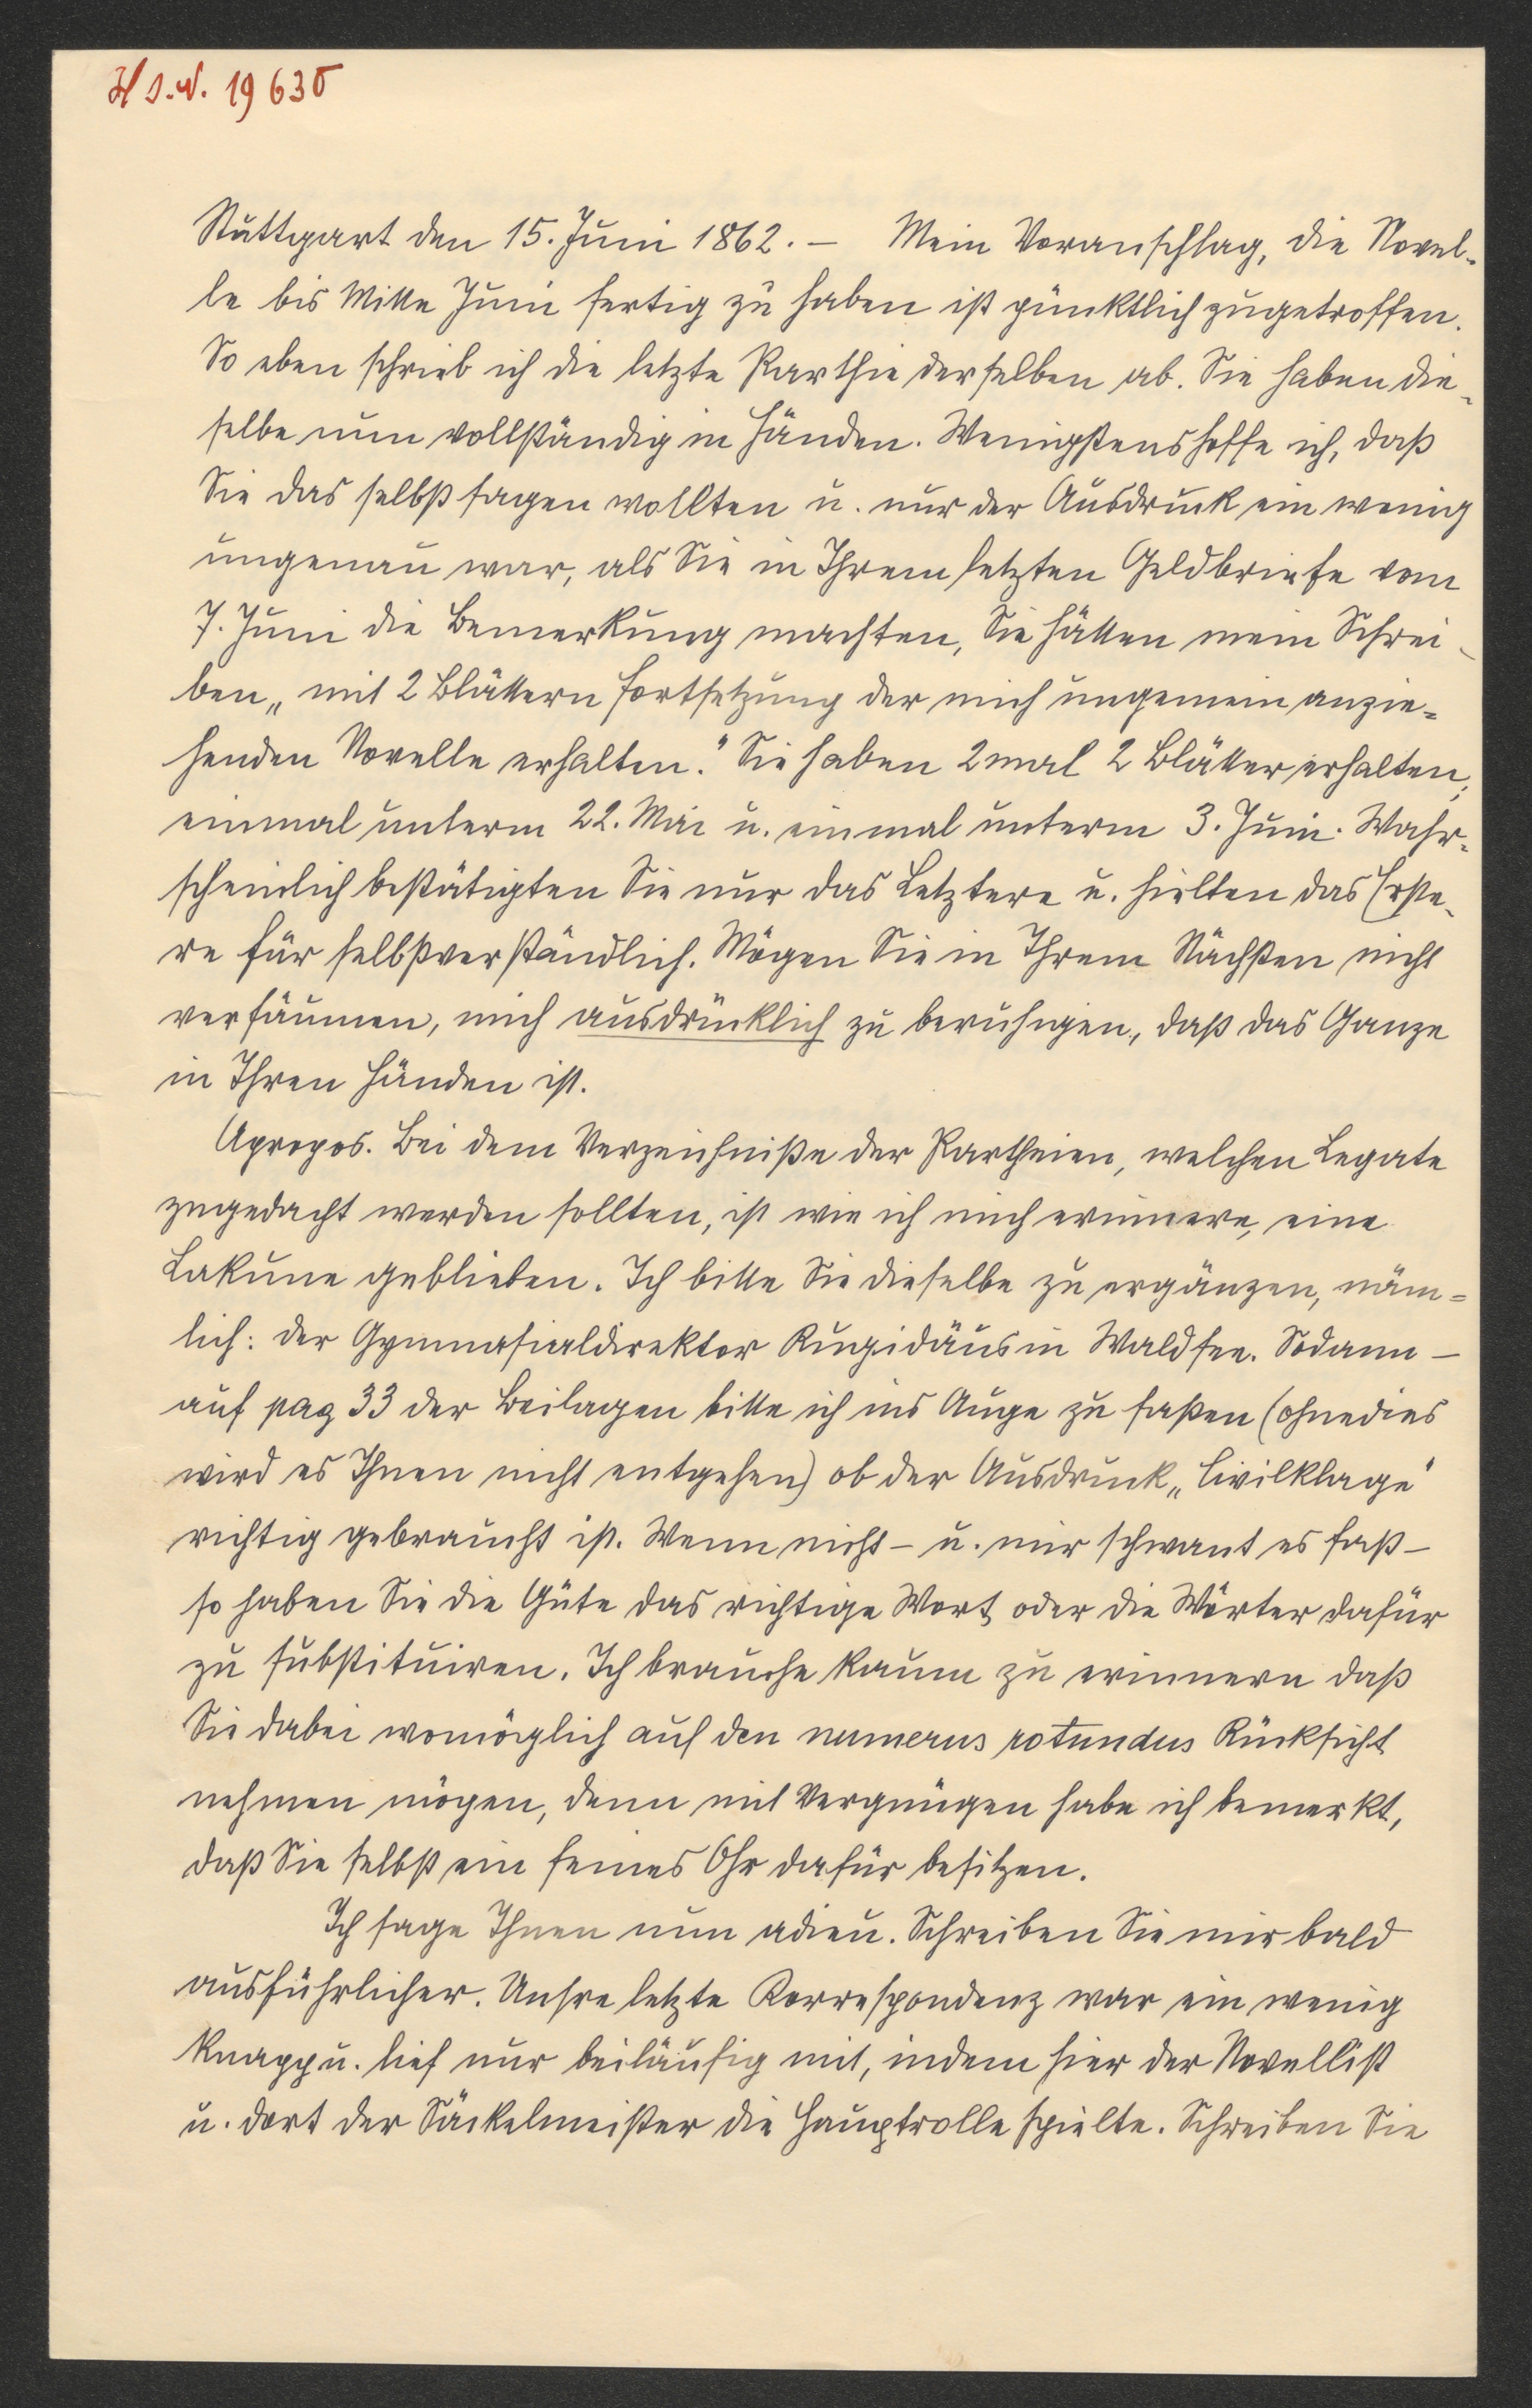 H I. N. 19630
Stuttgart den 15. Juni 1862. – Mein Voranschlag, die Novel-
le bis Mitte Juni fertig zu haben ist pünktlich zugetroffen.
So eben schrieb ich die letzte Parthie derselben ab. Sie haben die-
selbe nun vollständig in Händen. Wenigstens hoffe ich, daß
Sie das selbst sagen wollten u. nur der Ausdruck ein wenig
ungenau war, als Sie in Ihrem letzten Geldbriefe vom
7. Juni die Bemerkung machten, Sie hätten mein Schrei-
ben „mit 2 Blättern Fortsetzung der mich ungemein anzie-
henden Novelle erhalten." Sie haben 2mal 2 Blätter erhalten;
einmal unterm 22. Mai u. einmal unterm 3. Juni. Wahr-
scheinlich bestätigten Sie nur das Letztere u. hielten das Erste-
re für selbstverständlich. Mögen Sie in Ihrem Nächsten nicht
versäumen, mich ausdrücklich zu beruhigen, daß das Ganze
in Ihren Händen ist.
Apropos. Bei dem Verzeichniße der Partheien, welchen Legate
zugedacht werden sollten, ist wie ich mich erinnere, eine
Lakune geblieben. Ich bitte Sie dieselbe zu ergänzen, näm-
lich: der Gymnasialdirektor Rugidäus in Waldsee. Sodann –
auf pag 33 der Beilagen bitte ich ins Auge zu faßen (ohnedies
wird es Ihnen nicht entgehen) ob der Ausdruck „Civilklage"
richtig gebraucht ist. Wenn nicht – u. mir schwant es fast –
so haben Sie die Güte das richtige Wort oder die Wörter dafür
zu substituiren. Ich brauche kaum zu erinnern daß
Sie dabei womöglich auf den numerus rotundus Rücksicht
nehmen mögen, denn mit Vergnügen habe ich bemerkt,
daß Sie selbst ein feines Ohr dafür besitzen.
Ich sage Ihnen nun adieu. Schreiben Sie mir bald
ausführlicher. Unsre letzte Korrespondenz war ein wenig
knapp u. lief nur beiläufig mit, indem hier der Novellist
u. dort der Säckelmeister die Hauptrolle spielte. Schreiben Sie